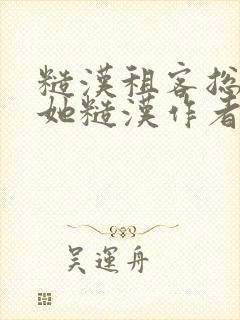 糙漢租客总
她糙漢作者
吴運舟